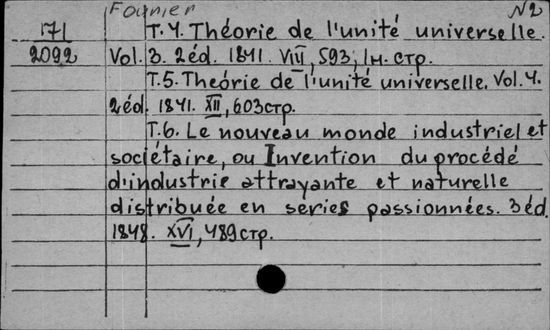 Fournier №2
171 T.4. Théorie de l'unité universelle.
2092 Vol. 3. 2éd. 1841. VIII, 593, 1н. стр.
T.5. Theórie de l'unité universelle. Vol. 4.
2éd. 1841. XII, 603стр.
T.6. Le nouveau monde industriel et
sociétaire, ou Invention du procédé
d'industrie attrayante et naturelle
distribuée en series passionnées. 3éd.
1848. XVI, 489стр.